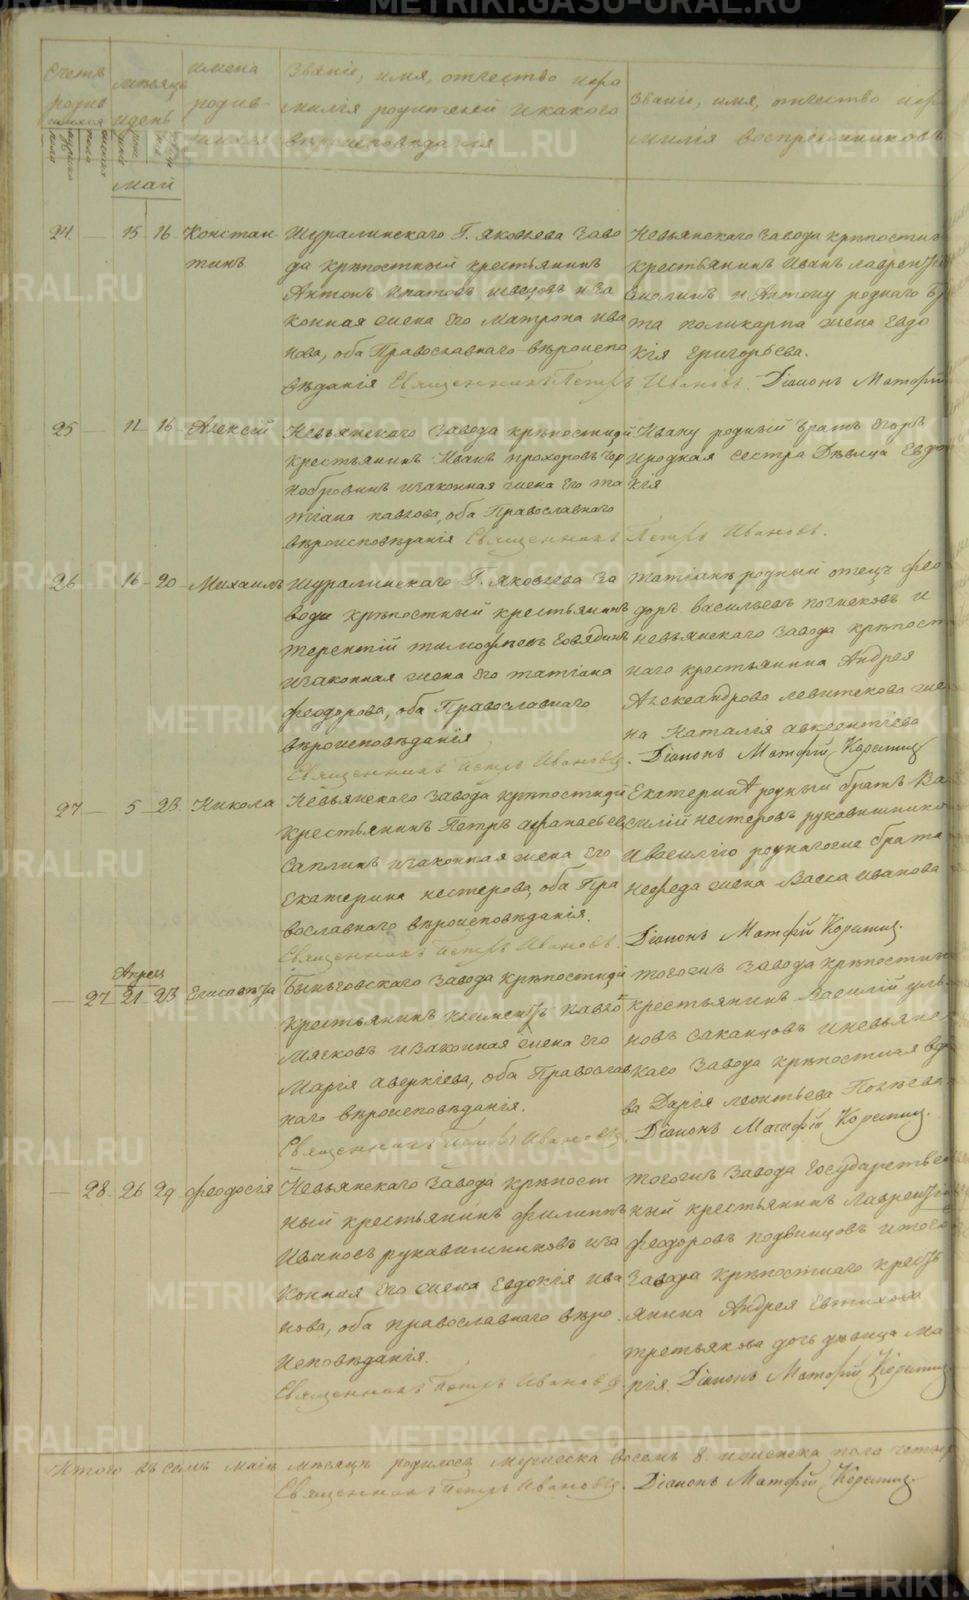 Счетъ родив шихся
мѣсяцъ и день
имена родив шихся
Званіе, имя, отчество и фа
милія родителей и какого
вѣроисповѣданія
Званіе, имя, отчество и фа
милія воспреемниковъ
май
24 — 15 16 Констан
тинъ
Шуралинскаго Г. Яковлева заво
да крѣпостный крестьянинъ
Антонъ Ипатовъ Швецовъ и за
конная жена его Матрона Ива
нова, оба Православнаго вѣроиспо
вѣданія Священникъ Петръ Ивановъ. Діаконъ Матфій
Невьянскаго завода крѣпостный
крестьянинъ Иванъ Лаврентій
и Антону роднаго бра
та Поликарпа жена Евдо
кія Григорьева.
25 — 12 16 Алексій
Невьянскаго завода крѣпостный
крестьянинъ Иванъ Прохоровъ Чер
нобровинъ и законная жена его Та
тіана Павлова, оба Православнаго
вѣроисповѣданія Священникъ Петръ Ивановъ.
Ивану родный братъ Егоръ
и родная сестра Дѣвица Евдо
кія
26 — 16 20 Михаилъ
Шуралинскаго Г. Яковлева за
вода крѣпостный крестьянинъ
Терентій Тимофѣевъ
и законная жена его Татіана
Феодорова, оба Православнаго
вѣроисповѣданія
Священникъ Петръ Ивановъ.
Татіанѣ родный отецъ Фео
доръ Васильевъ и
Невьянскаго завода крѣпост
наго крестьянина Андрея
Александрова жена
Наталія Авксентіева
Діаконъ Матфій Корытинъ
27 — 5 23 Никола
Невьянскаго завода крѣпостный
крестьянинъ Петръ Афанасьевъ
Саплинъ и законная жена его
Екатерина Нестерова, оба Пра
вославнаго вѣроисповѣданія.
Священникъ Петръ Ивановъ.
Екатеринѣ родный братъ Ва
силій Нестеровъ Рукавишнико
и Василію роднаго же брата
Нефеда жена Васса Иванова
Діаконъ Матфій Корытинъ.
Апрел
— 27 21 23 Елисавѣта
Быньговскаго завода крѣпостный
крестьянинъ Климентъ Павло
Мягковъ и законная жена его
Марія Аверкіева, оба Православ
наго вѣроисповѣданія.
Священникъ Петръ Ивановъ.
Тогожъ завода крѣпостный
крестьянинъ Василій Улья
новъ Саканцовъ и Невьянс
каго завода крѣпостная вдо
ва Дарія Леонтьева
Діаконъ Матфій Корытинъ.
— 28. 26 29 Феодосія
Невьянскаго завода крѣпост
ный крестьянинъ Филиппъ
Ивановъ Рукавишниковъ и за
конная его жена Евдокія Ива
нова, оба православнаго вѣро
исповѣданія.
Священникъ Петръ Ивановъ.
Тогожъ завода Государствен
ный крестьянинъ Лаврентій
Феодоровъ Подвинцовъ и того
завода крѣпостнаго кресть
янина Андрея Евтихова
Третьякова дочь дѣвица Ма
рія. Діаконъ Матфій Корытинъ
Итого въ семъ маіѣ мѣсяцѣ родилось мужеска восемь 8. и женска пола четыр
Священникъ Петръ Ивановъ. Діаконъ Матфій Корытинъ.
METRIKI.GASO-URAL.RU